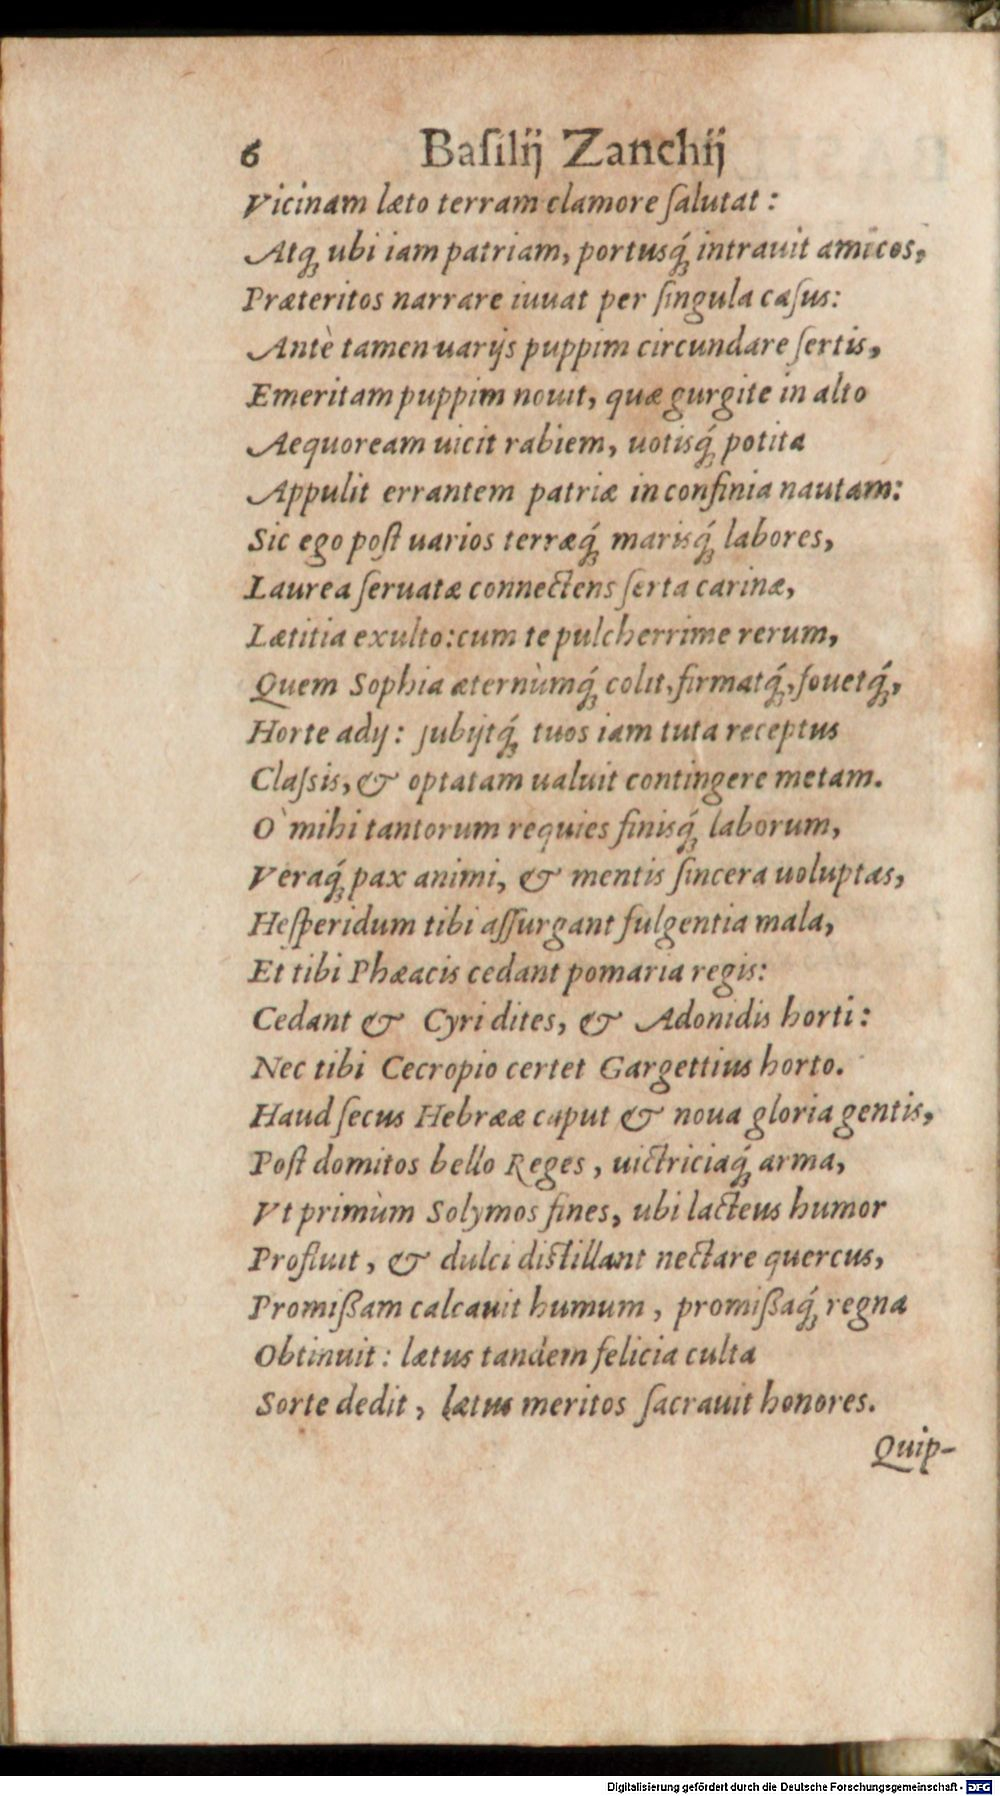 6 Baſilij Zanchij
Vicinam læto terram clamore ſalutat :
Atq́; ubi iam patriam, portusq́; intrauit amicos,
Præteritos narrare iuuat per ſingula caſus:
Antè tamen uarijs puppim circundare ſertis,
Emeritam puppim nouit, quæ gurgite in alto
Aequoream uicit rabiem, uotisq́; potita
Appulit errantem patriæ in confinia nautam:
Sic ego poſt uarios terræq́; marisq́; labores,
Laurea ſeruatæ connectens ſerta carinæ,
Lætitia exulto: cum te pulcherrime rerum,
Quem Sophia æternùmq́; colit, firmatq́;, fouetq́;,
Horte adij : ſubijtq́; tuos iam tuta receptus
Claſsis, & optatam ualuit contingere metam.
O' mihi tantorum requies finisq́; laborum,
Veraq́; pax animi, & mentis ſincera uoluptas,
Heſperidum tibi aſſurgant fulgentia mala,
Et tibi Phæacis cedant pomaria regis:
Cedant & Cyri dites, & Adonidis horti :
Nec tibi Cecropio certet Gargettius horto.
Haud ſecus Hebrææ caput & noua gloria gentis,
Poſt domitos bello Reges, uictriciaq́; arma,
Vt primùm Solymos fines, ubi lacteus humor
Profluit, & dulci diſtillant nectare quercus,
Promißam calcauit humum, promißaq́; regna
Obtinuit : lætus tandem felicia culta
Sorte dedit, lætus meritos ſacrauit honores.
Quip-
Digitalisierung gefördert durch die Deutsche Forschungsgemeinschaft - DFG